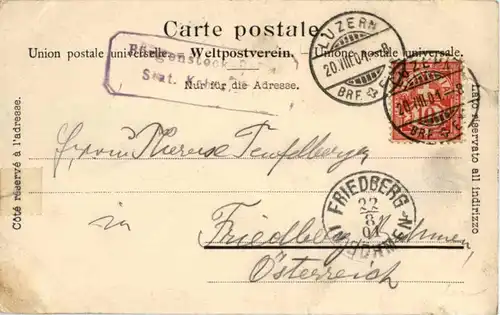 Carte postale.
Union postale universelle. Weltpostverein. Unione postale universale.
Nur für die Adresse.
Bürgenstock
Stat.
LUZERN
20.VIII.04.
BRF.
LUZERN
20.VIII.04.
BRF.
Côté réservé à l'adresse.
Lato riservato all indirizzo
Frau Therese Teufelberger
in
Friedberg, Böhmen,
Österreich
FRIEDBERG
22
8
04